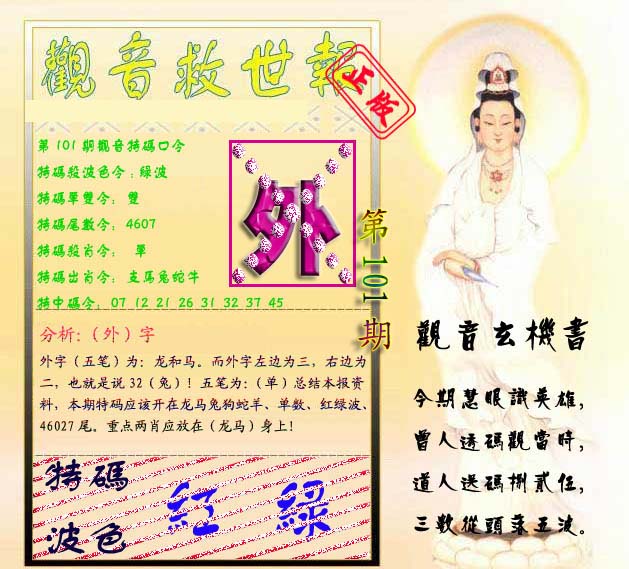 觀音救世報
正版
第101期觀音特碼口令
特碼殺波色令：綠波
特碼單雙令： 雙
特碼尾數令：4607
特碼殺肖令： 單
特碼出肖令：支馬兔蛇牛
特中碼令：07 12 21 26 31 32 37 45
外
第101期
分析:（外）字
外字（五笔）为：龙和马。而外字左边为三，右边为
二，也就是说32（兔）！五笔为：（单）总结本报资
料，本期特码应该开在龙马兔狗蛇羊、单数、红绿波、
46027尾。重点两肖应放在（龙马）身上！
特碼
波色
红 绿
觀音玄機書
今期慧眼識英雄，
曾人透碼觀當時，
道人送碼捌貳伍，
三數從頭落五波。